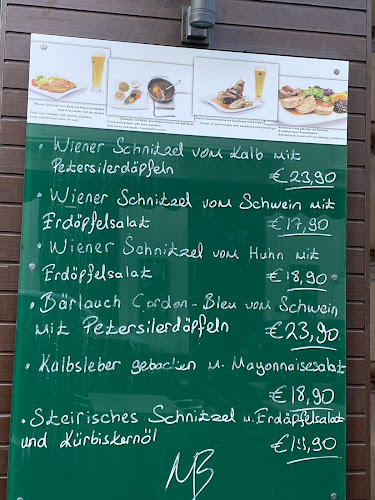 • Wiener Schnitzel vom Kalb mit
Petersilerdöpfeln €23,90
• Wiener Schnitzel vom Schwein mit
Erdöpfelsalat €17,90
• Wiener Schnitzel vom Huhn mit
Erdöpfelsalat €18,90
• Bärlauch Cordon-Bleu vom Schwein
mit Petersilerdöpfeln €23,90
• Kalbsleber gebacken m. Mayonnaisesalat
€18,90
• Steirisches Schnitzel m. Erdäpfelsalat
und Kürbiskernöl €19,90
MB